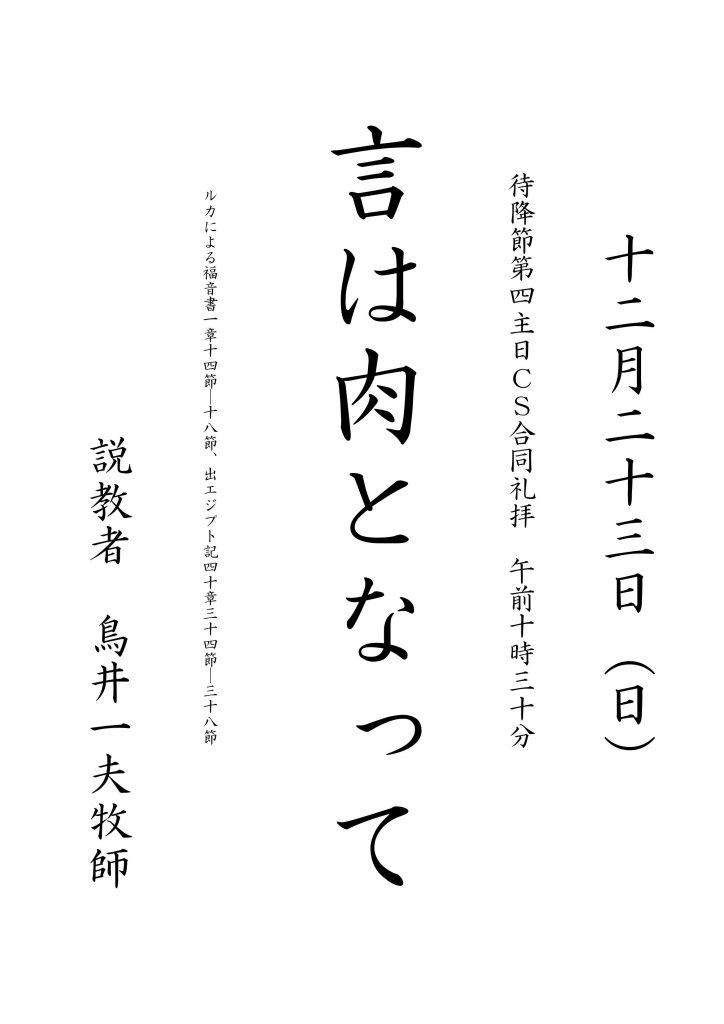 十二月二十三日（日）
待降節第四主日ＣＳ合同礼拝　午前十時三十分
言は肉となって
ルカによる福音書一章十四節―十八節、出エジプト記四十章三十四節―三十八節
説教者　鳥井一夫牧師